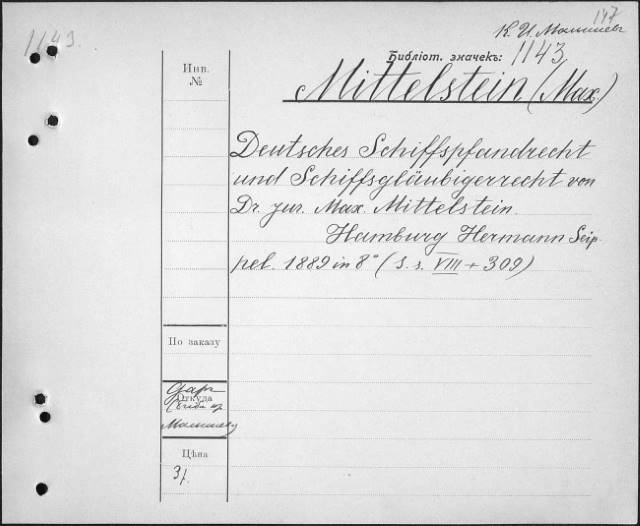 147
К. И. Малышев
1143.
Библіот. значекъ: 1143
Инв.
№
Mittelstein (Max)
Deutsches Schiffspfandrecht
und Schiffsgläubigerrecht von
Dr. jur. Max. Mittelstein.
Hamburg Hermann Seip-
pel. 1889 in 8° (S. s. VIII + 309)
По заказу
Даръ
Откуда
Малышеву
Цѣна
3 р.